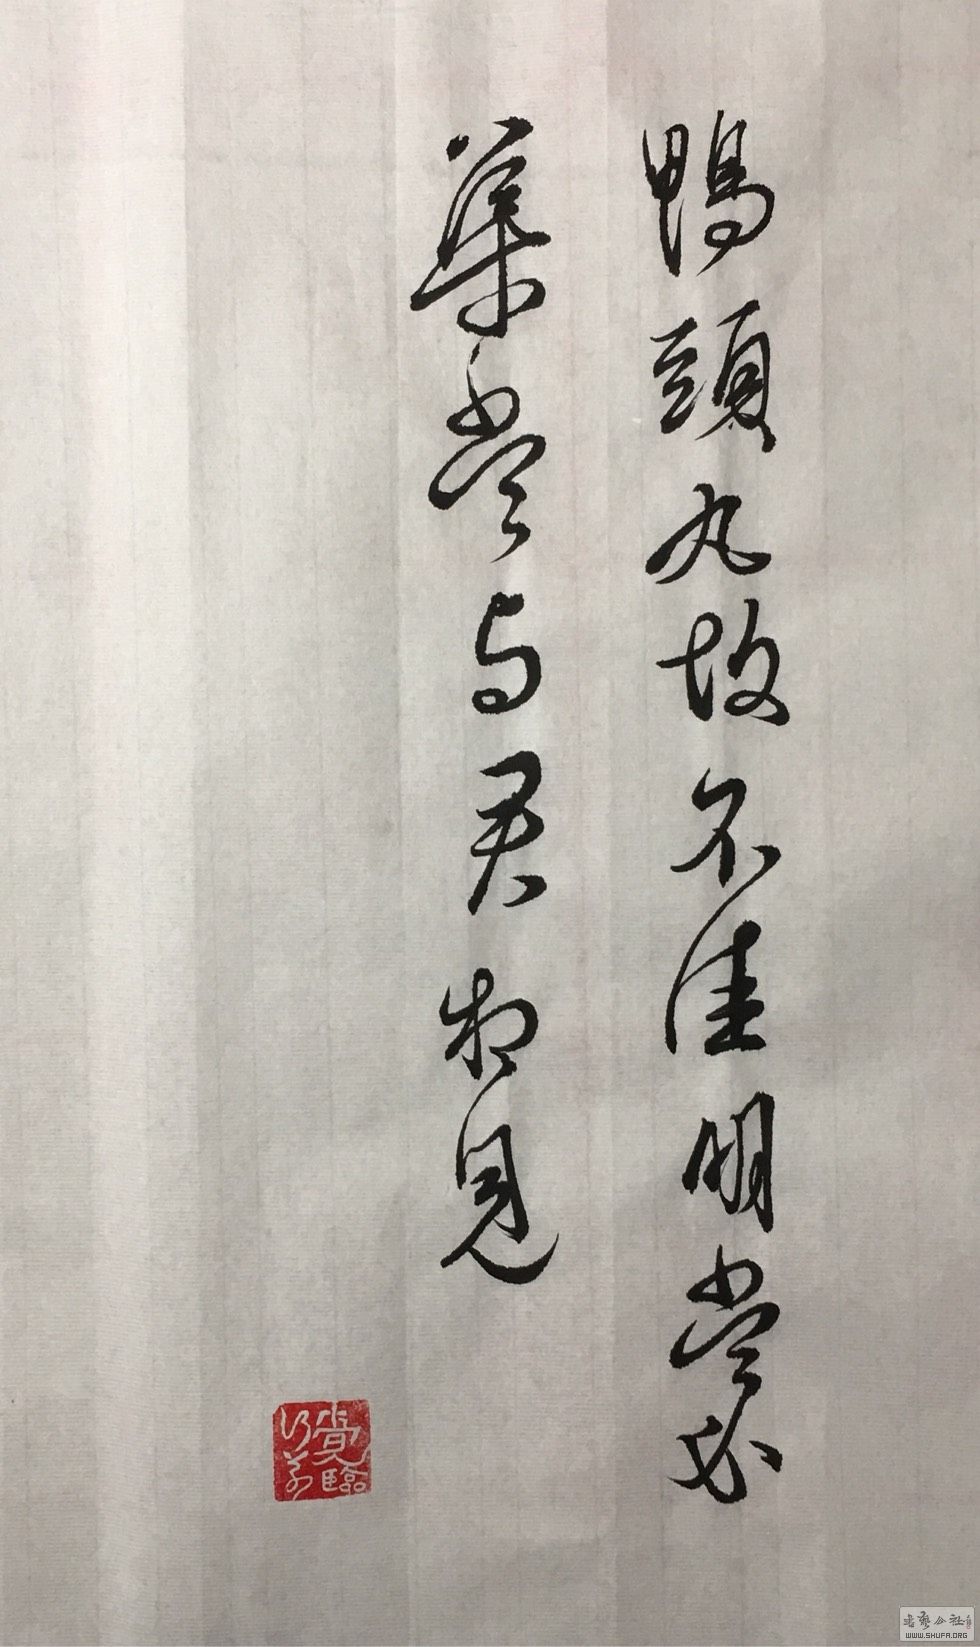 鴨頭丸故不佳明當必
集當與君相見
書藝公社
WWW.SHUFA.ORG